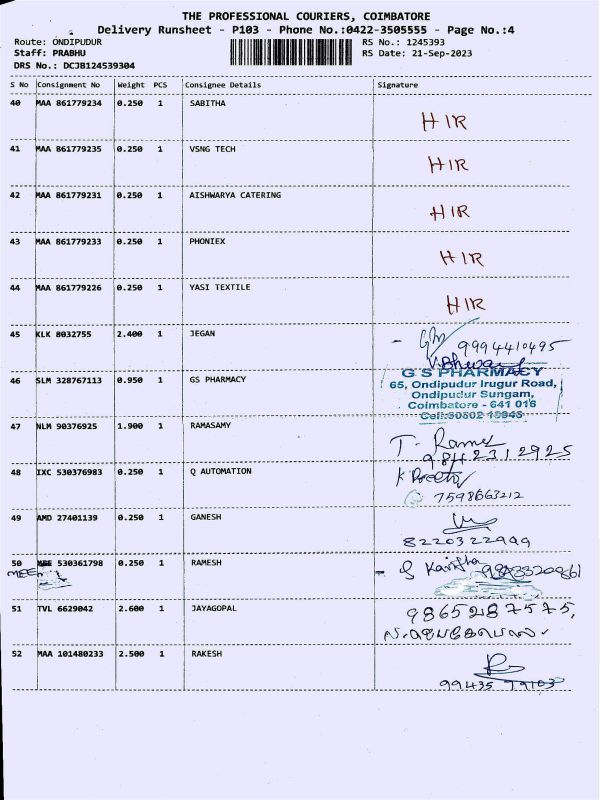 THE PROFESSIONAL COURIERS, COIMBATORE
Delivery Runsheet - P103 - Phone No.:0422-3505555 - Page No.:4
Route: ONDIPUDUR RS No.: 1245393
Staff: PRABHU RS Date: 21-Sep-2023
DRS No.: DCJB124539304
S No Consignment No Weight PCS Consignee Details Signature
40 MAA 861779234 0.250 1 SABITHA HIR
41 MAA 861779235 0.250 1 VSNG TECH HIR
42 MAA 861779231 0.250 1 AISHWARYA CATERING HIR
43 MAA 861779233 0.250 1 PHONIEX HIR
44 MAA 861779226 0.250 1 YASI TEXTILE HIR
45 KLK 8032755 2.400 1 JEGAN 9994410495
46 SLM 328767113 0.950 1 GS PHARMACY
G S PHARMACY
65, Ondipudur Irugur Road,
Ondipudur Sungam,
Coimbatore - 641 016
47 NLM 90376925 1.900 1 RAMASAMY
9842312925
48 IXC 530376983 0.250 1 Q AUTOMATION
7598663212
49 AMD 27401139 0.250 1 GANESH
8220322999
50 MEE 530361798 0.250 1 RAMESH
MEE
51 TVL 6629042 2.600 1 JAYAGOPAL 9865287575,
52 MAA 101480233 2.500 1 RAKESH
99435 79103